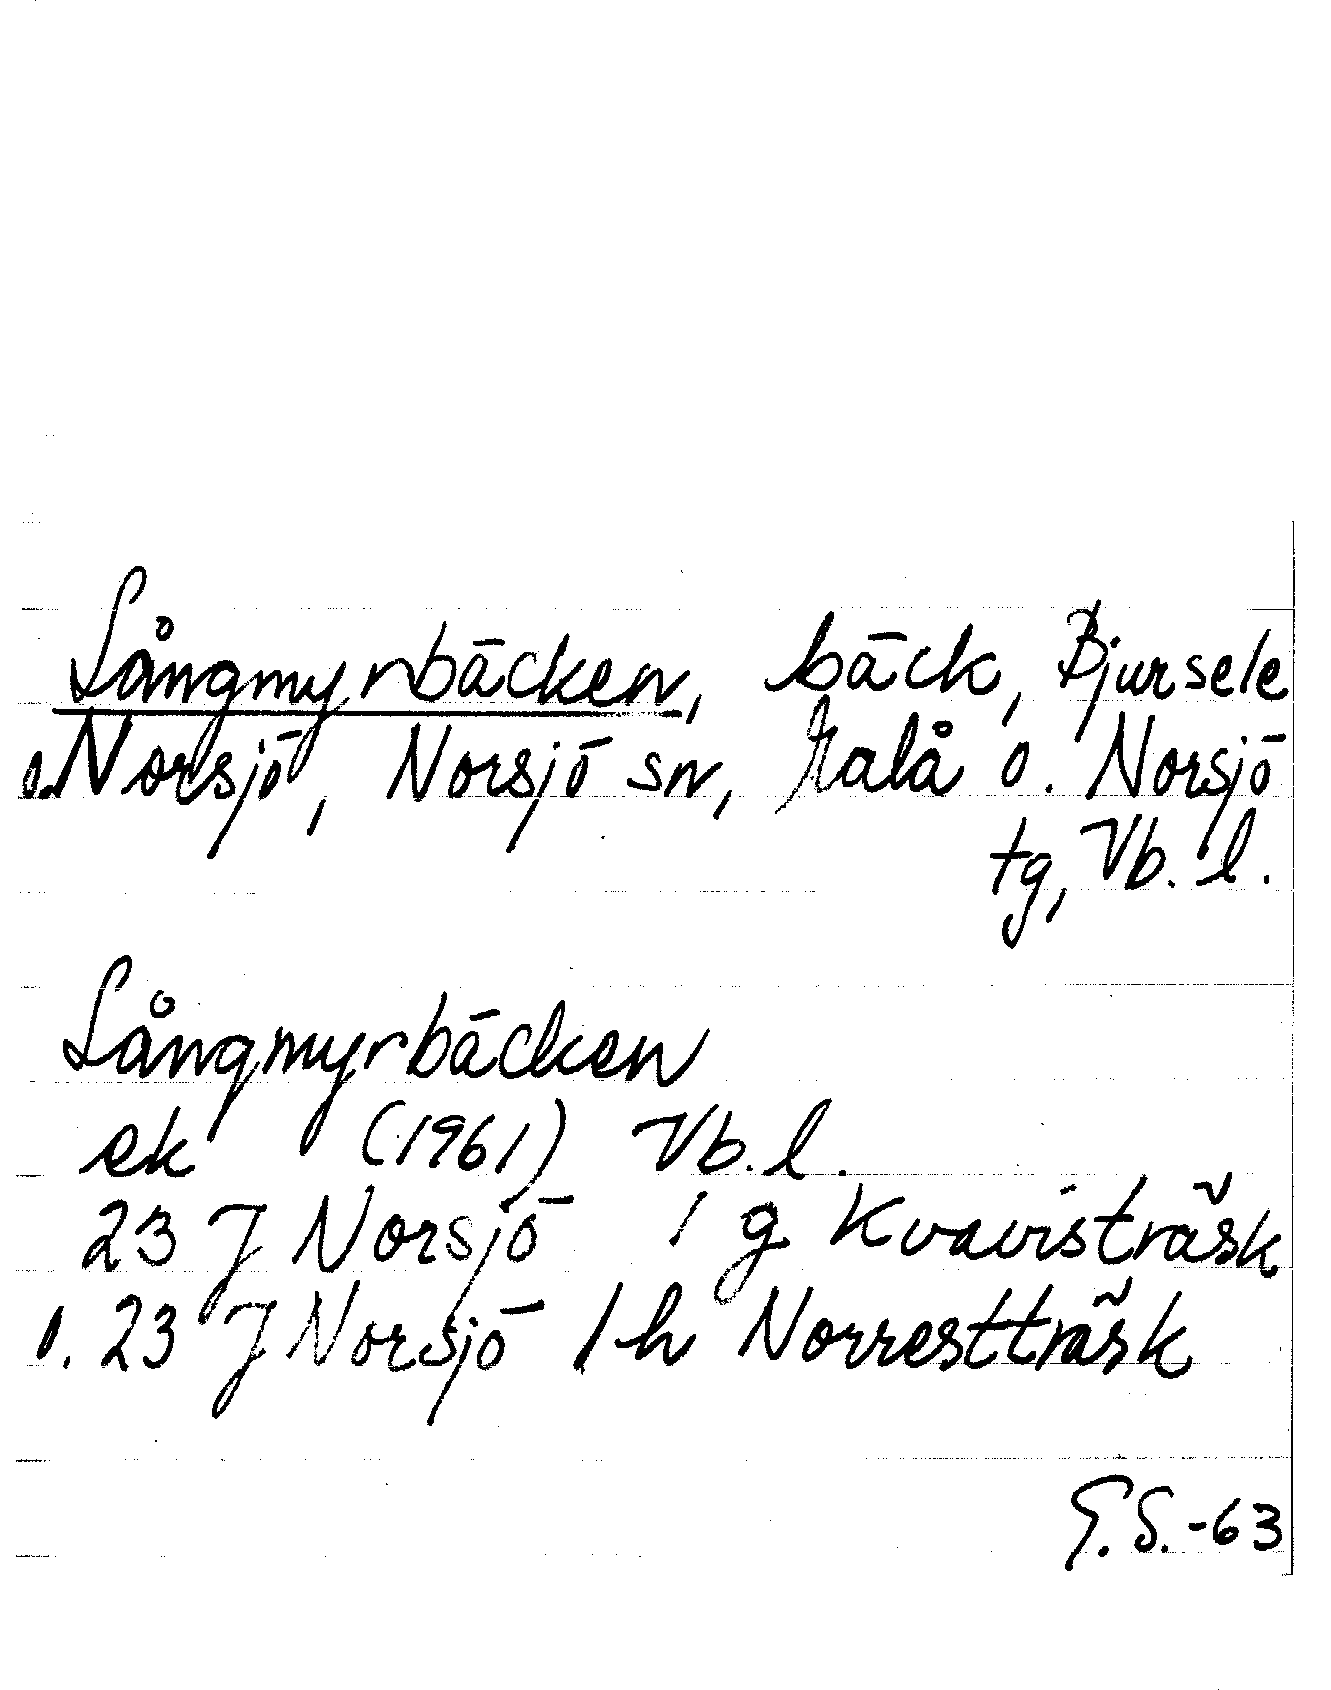 Långmyrbäcken, bäck, Bjursele
o. Norsjö, Norsjö sn, Malå o. Norsjö
tg, Vb. l.
Långmyrbäcken
ek (1961) Vb. l.
23 J Norsjö 1 g Kvavisträsk
o. 23 J Norsjö 1 h Norrestträsk
G.S.-63